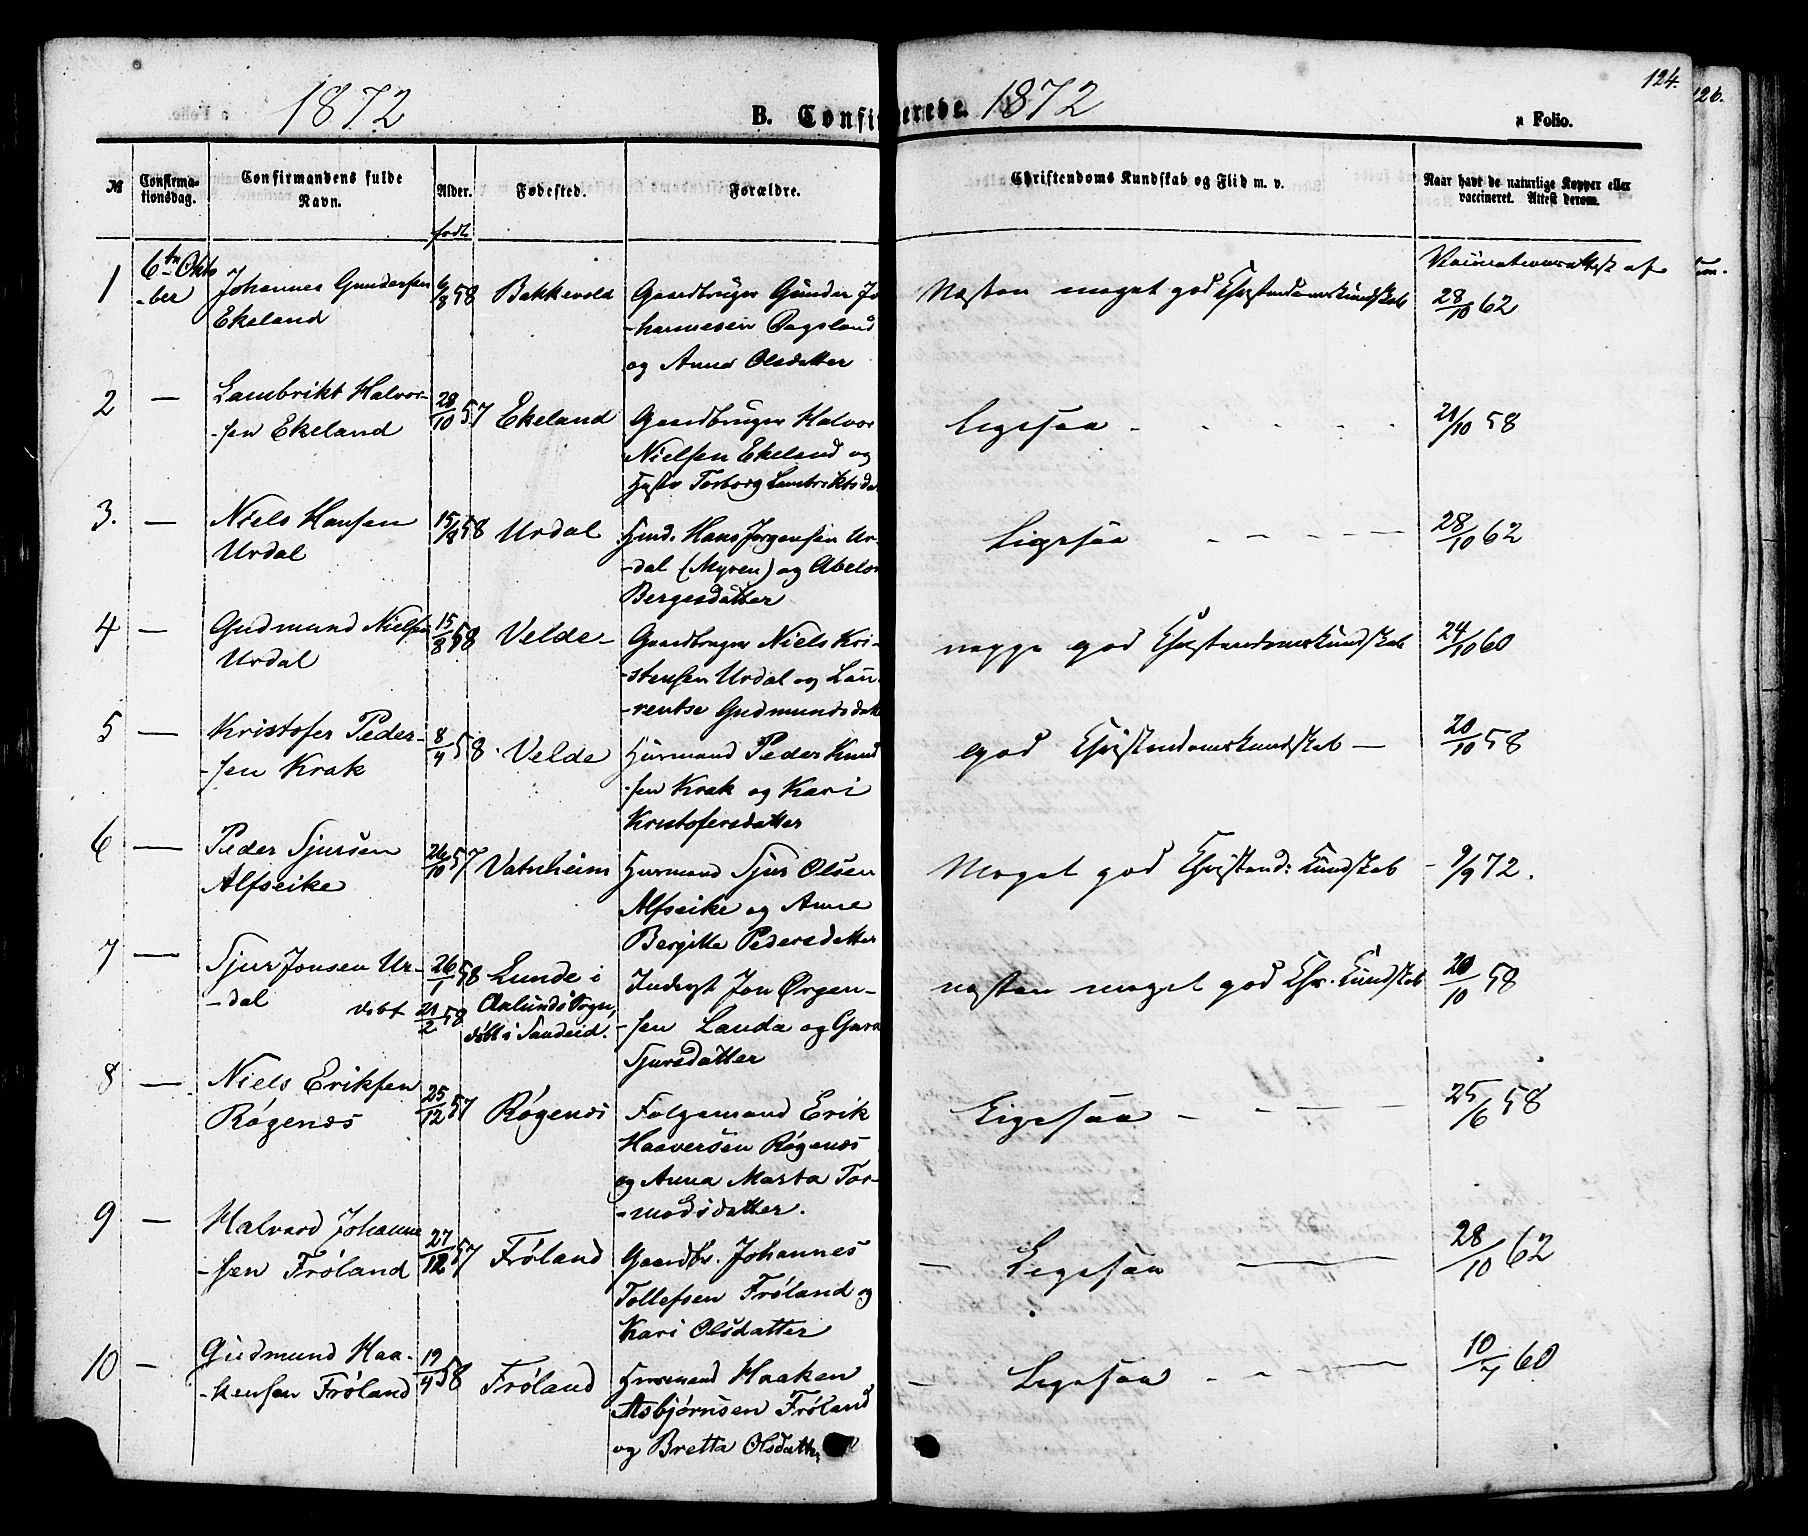 1872
B. Confirmerede.
1872
124.
126.
a Folio.
№
Confirma-
tionsdag.
Confirmandens fulde
Navn.
Alder.
Fødested.
Forældre.
Christendoms Kundskab og Flid m. v.
Naar havt de naturlige Kopper eller
vaccineret. Attest derom.
født
1
6te Okto
-ber
Johannes Gundersen
Ekeland
6/3 58
Bakkevold
Gaardbruger Gunder Jo
-hannesen Dagsland
og Anna Olsdatter
Næsten meget god Christendomskundskab
Vaccinationsattest af
28/10 62
2
—
Lambrikt Halvor-
-sen Ekeland
28/10 57
Ekeland
Gaardbruger Halvor
Nielsen Ekeland og
Hustr Torborg Lambriktsda
Ligesaa
21/10 58
3.
—
Niels Hansen
Urdal
15/8 58
Urdal
Husm. Hans Jørgensen Ur-
-dal (Myren) og Abelon
Bergesdatter
Ligesaa
28/10 62
4
—
Gudmund Nielsen
Urdal
15/8 58
Velde
Gaardbruger Niels Kri-
-stensen Urdal og Lau-
-rentse Gudmundsdatt
neppe god Christendomskundskab
24/10 60
5
—
Kristofer Peder-
-sen Krak
8/4 58
Velde
Husmand Peder Knud
-sen Krak og Kari
Kristofersdatter
god Christendomskundskab —
20/10 58
6
—
Peder Sjursen
Alfseike
26/10 57
Vatnheim
Husmand Sjur Olsen
Alfseike og Anne
Bergitte Pedersdatter
Meget god Christend: Kundskab
9/9 72.
7
—
Sjur Jonsen Ur-
-dal
26/1 58
døbt 21/2 58
Lunde i
Aalunds Sogn,
døbt i Sandeid.
Inderst Jon Ørgen-
-sen Landa og Guro
Sjursdatter
næsten meget god Chr. Kundskab
20/10 58
8
—
Niels Eriksen
Røgenæs
25/12 57
Røgenæs
Folgemand Erik
Haaversen Røgenæs
og Anna Marta Tor-
-modsdatter.
Ligesaa
25/6 58
9
—
Halvard Johanne
-sen Frøland
27/12 57
Frøland
Gaardbr. Johannes
Tollefsen Frøland og
Kari Olsdatter
Ligesaa
28/10 62
10
—
Gudmund Haa-
-kensen Frøland
19/4 58
Frøland
Husmand Haaken
Asbjørnsen Frøland
og Bretta Olsdatter
Ligesaa
10/7 60